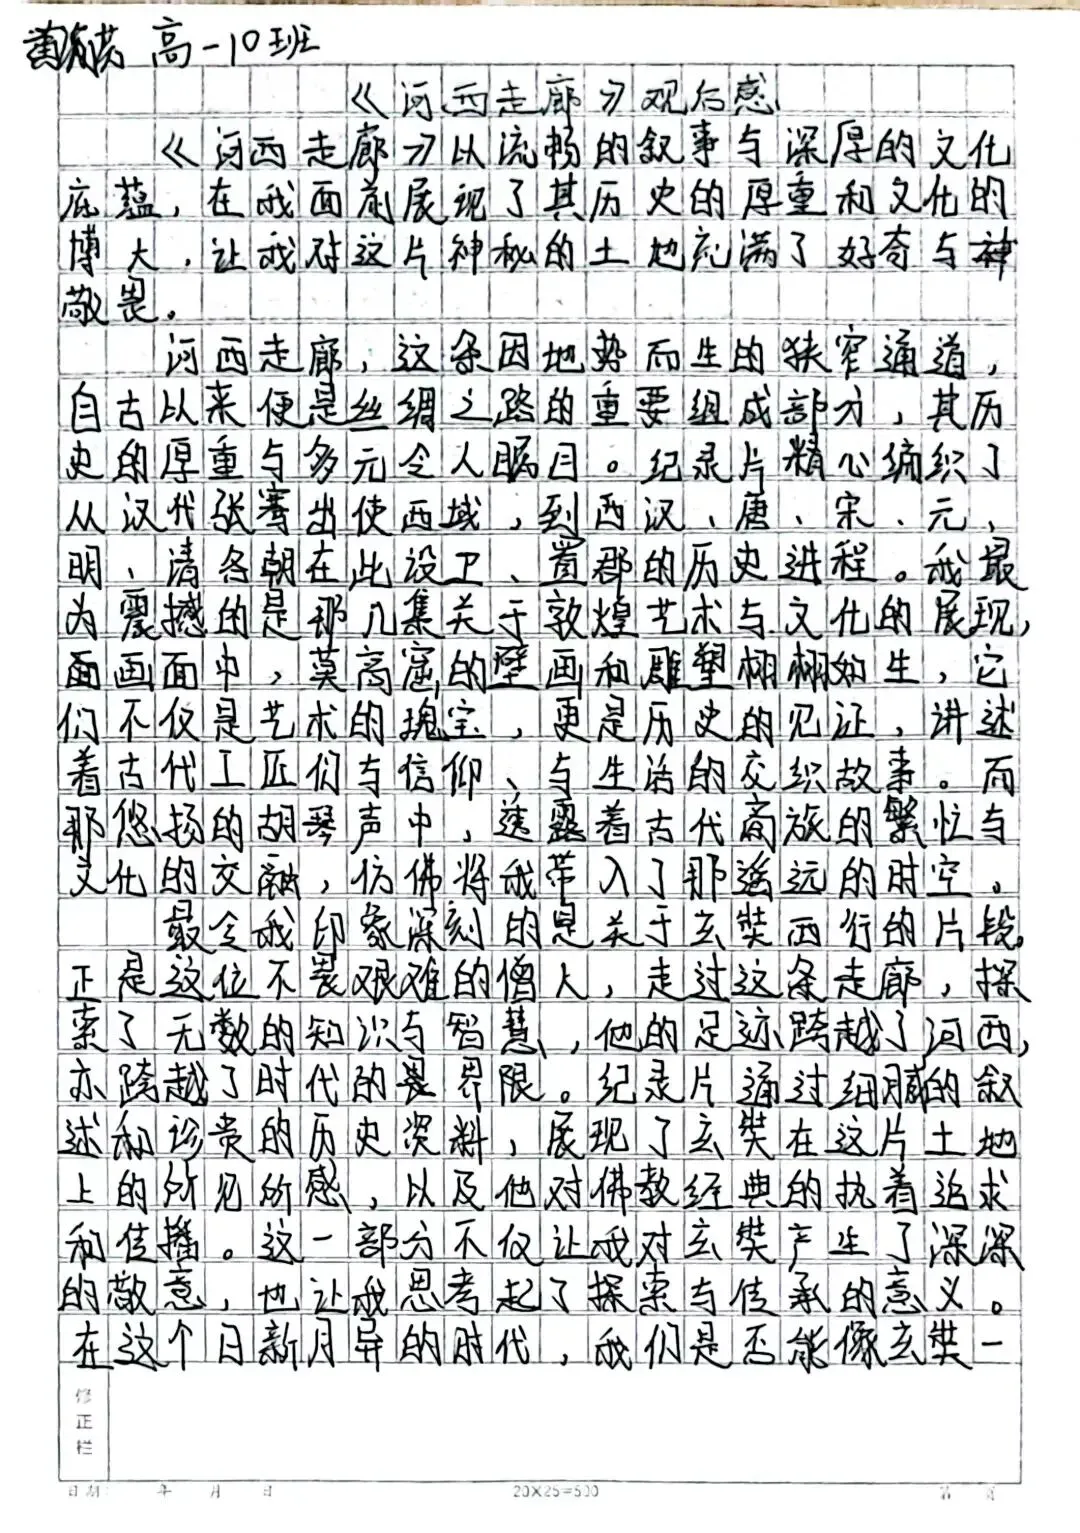 高一10班
《河西走廊》观后感
《河西走廊》以流畅的叙事与深厚的文化
底蕴,在我面前展现了其历史的厚重和文化的
博大,让我对这片神秘的土地充满了好奇与神
敬畏。
河西走廊,这条因地势而生的狭窄通道,
自古以来便是丝绸之路的重要组成部分,其历
史的厚重与多元令人瞩目。纪录片精心编织了
从汉代张骞出使西域,到西汉、唐、宋、元、
明、清各朝在此设卫、置郡的历史进程。我最
为震撼的是那几集关于敦煌艺术与文化的展现,
画面中,莫高窟的壁画和雕塑栩栩如生,它
们不仅是艺术的瑰宝,更是历史的见证,讲述
着古代工匠们与信仰、与生活的交织故事。而
那悠扬的胡琴声中,透露着古代商旅的繁忙与
文化的交融,仿佛将我带入了那遥远的时空。
最令我印象深刻的是关于玄奘西行的片段。
正是这位不畏艰难的僧人,走过这条走廊,探
索了无数的知识与智慧,他的足迹跨越了河西,
亦跨越了时代的畏界限。纪录片通过细腻的叙
述和珍贵的历史资料,展现了玄奘在这片土地
上的所见所感,以及他对佛教经典的执着追求
和传播。这一部分不仅让我对玄奘产生了深深
的敬意,也让我思考起了探索与传承的意义。
在这个日新月异的时代,我们是否能像玄奘一
修正栏
日期 年 月 日 20×25=500 第 页